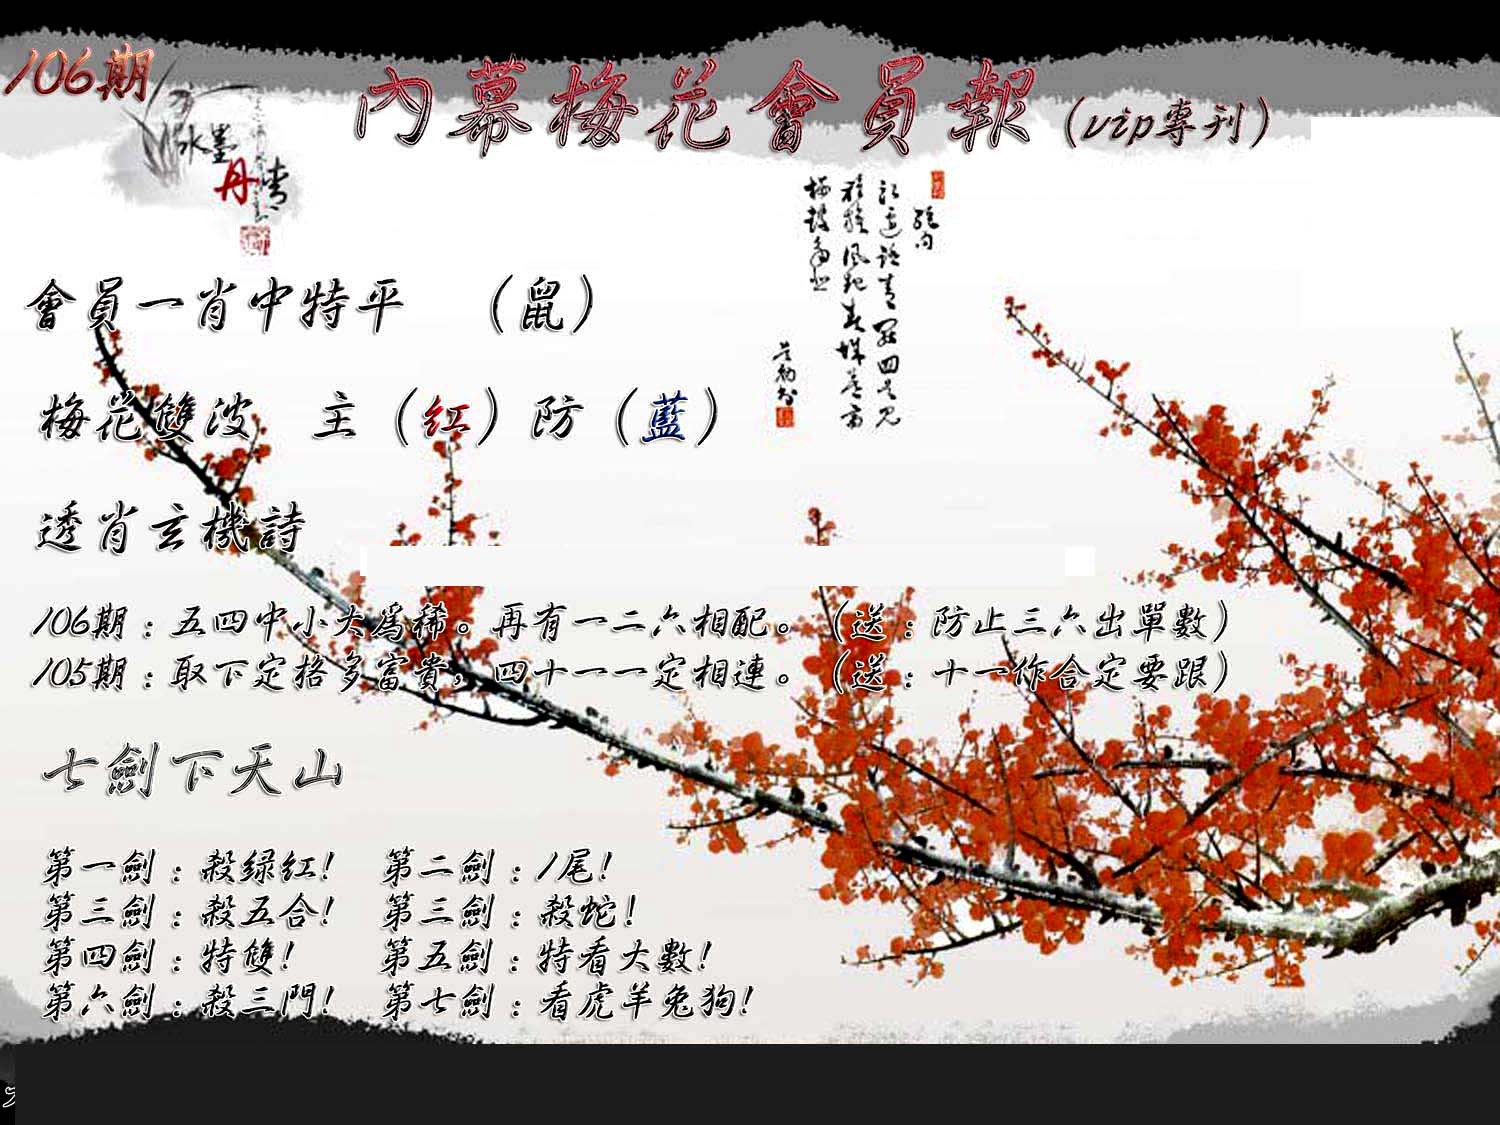 106期
內幕梅花會員報(vip專刊)
水墨
丹青
會員一肖中特平 （鼠）
梅花雙波 主（紅）防（藍）
透肖玄機詩
106期：五四中小大為稀。再有一二六相配。（送：防止三六出單數）
105期：取下定格多富貴，四十一一定相連。（送：十一作合定要跟）
七劍下天山
第一劍：殺綠紅！ 第二劍：1尾！
第三劍：殺五合！ 第三劍：殺蛇！
第四劍：特雙！ 第五劍：特看大數！
第六劍：殺三門！ 第七劍：看虎羊兔狗！